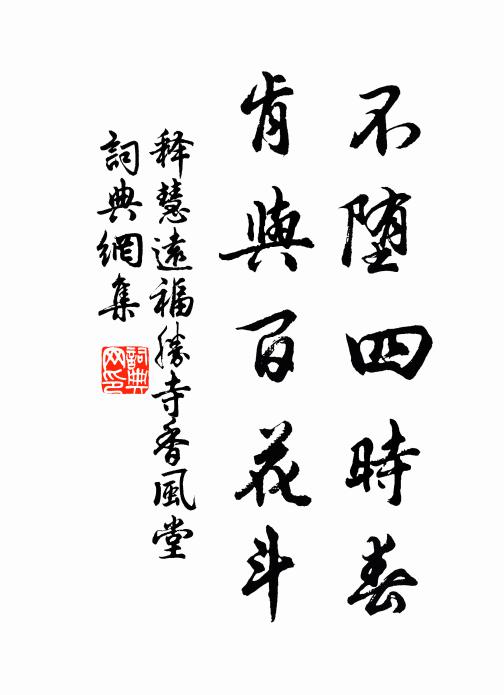 不堕四時春
肯與百花斗
释慧遠福勝寺香風堂
詞典網集
詞典
网印